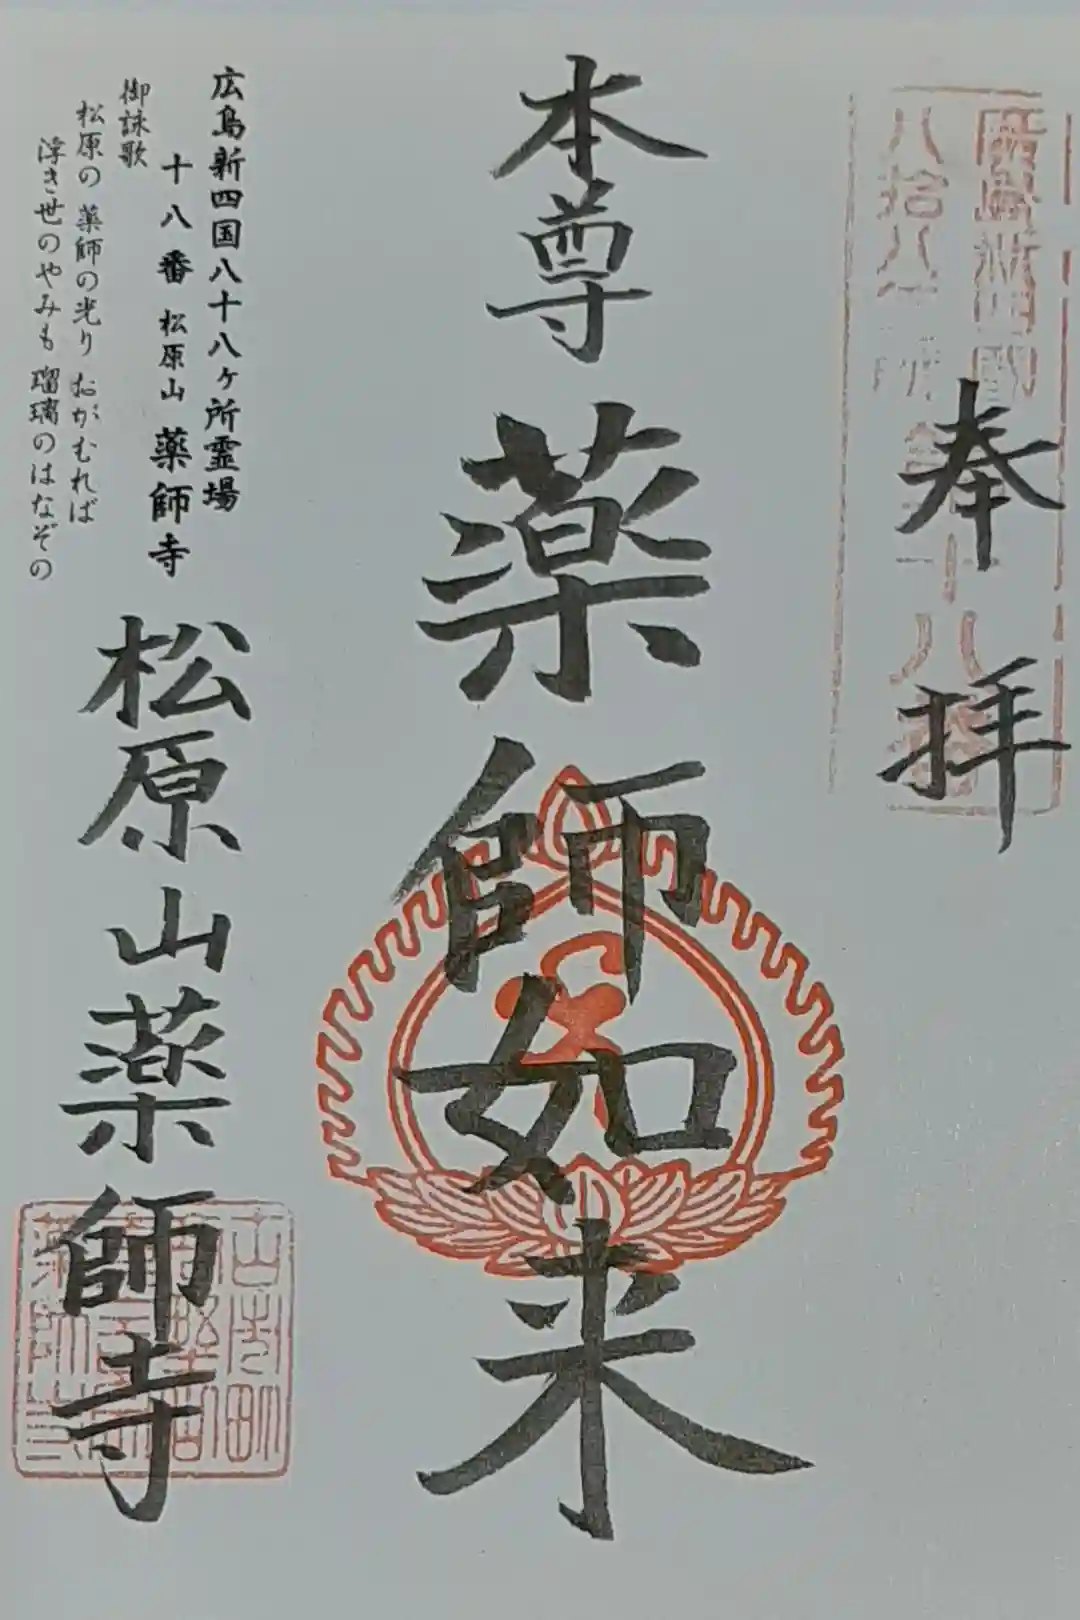 奉拝
廣島新四國
八拾八ヶ所
第十八番
本尊 薬師如来
広島新四国八十八ヶ所霊場
十八番 松原山 薬師寺
御詠歌
松原の 薬師の光り おがむれば
浮き世のやみも 瑠璃のはなぞの
松原山薬師寺